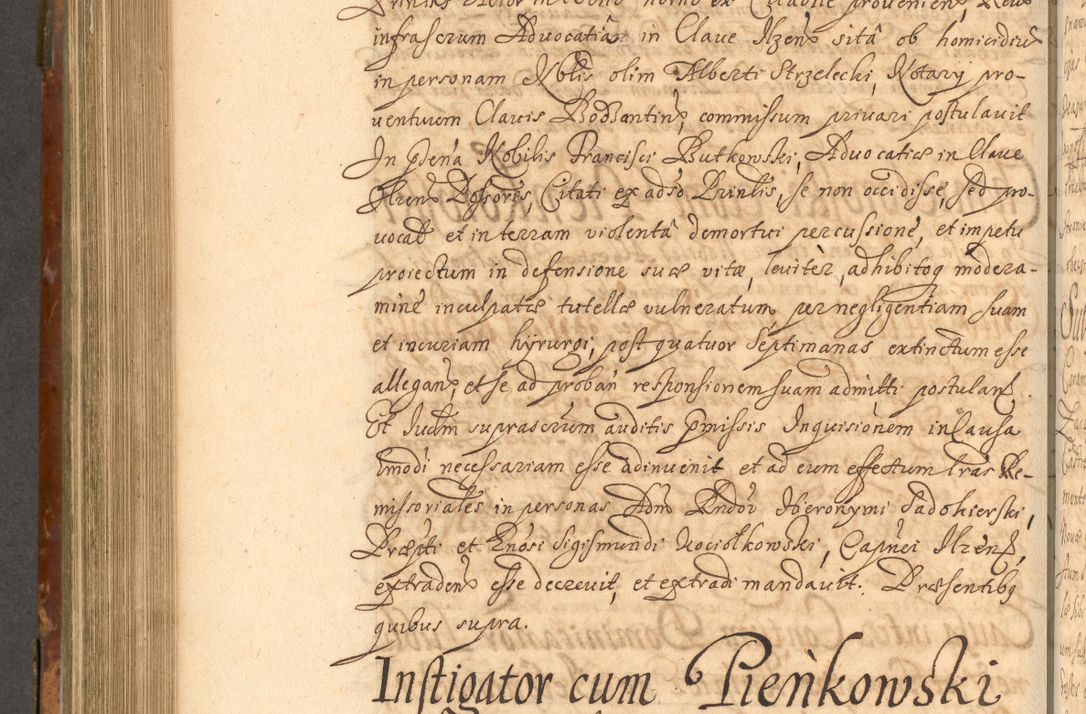 infrascrum Advocatiâ in Clave Ilzens sitâ ob homicidiũ
in personam Nblis olim Alberti Strzelecki, Notary pro-
ventuum Clavis Bodzantins, commissum privari postulavit
In psena Nobilis Francisci Butkowski, Advocatiæ in Clave
Ilzens Possoris, Citati ex adso Prinlis, se non occidisse, sed pro-
vocat et in terram violentâ demortui percussione, et impetu
proiectum in defensione suæ vitæ, leviter, adhibitoq modera-
mine inculpatæ tutellæ vulneratum, per negligentiam suam
et incuriam hyrurgi, post quatuor septimanas extinctum esse
allegans, et se ad proban responsionem suam admitti postulans.
Et Iudm suprascrum auditis pmissis Inquisionem in Causa
Emodi necessariam esse adinvenit et ad eum effectum lras Re-
missoriales in personas Adm Rndor Hieronymi Sadokierski,
Præpti et Gnosi Sigismundi Kociołkowski, Capnei Ilzens,
extradens esse decrevit, et extradi mandavit. Præsentibq
quibus supra.
Instigator cum Pieńkowski